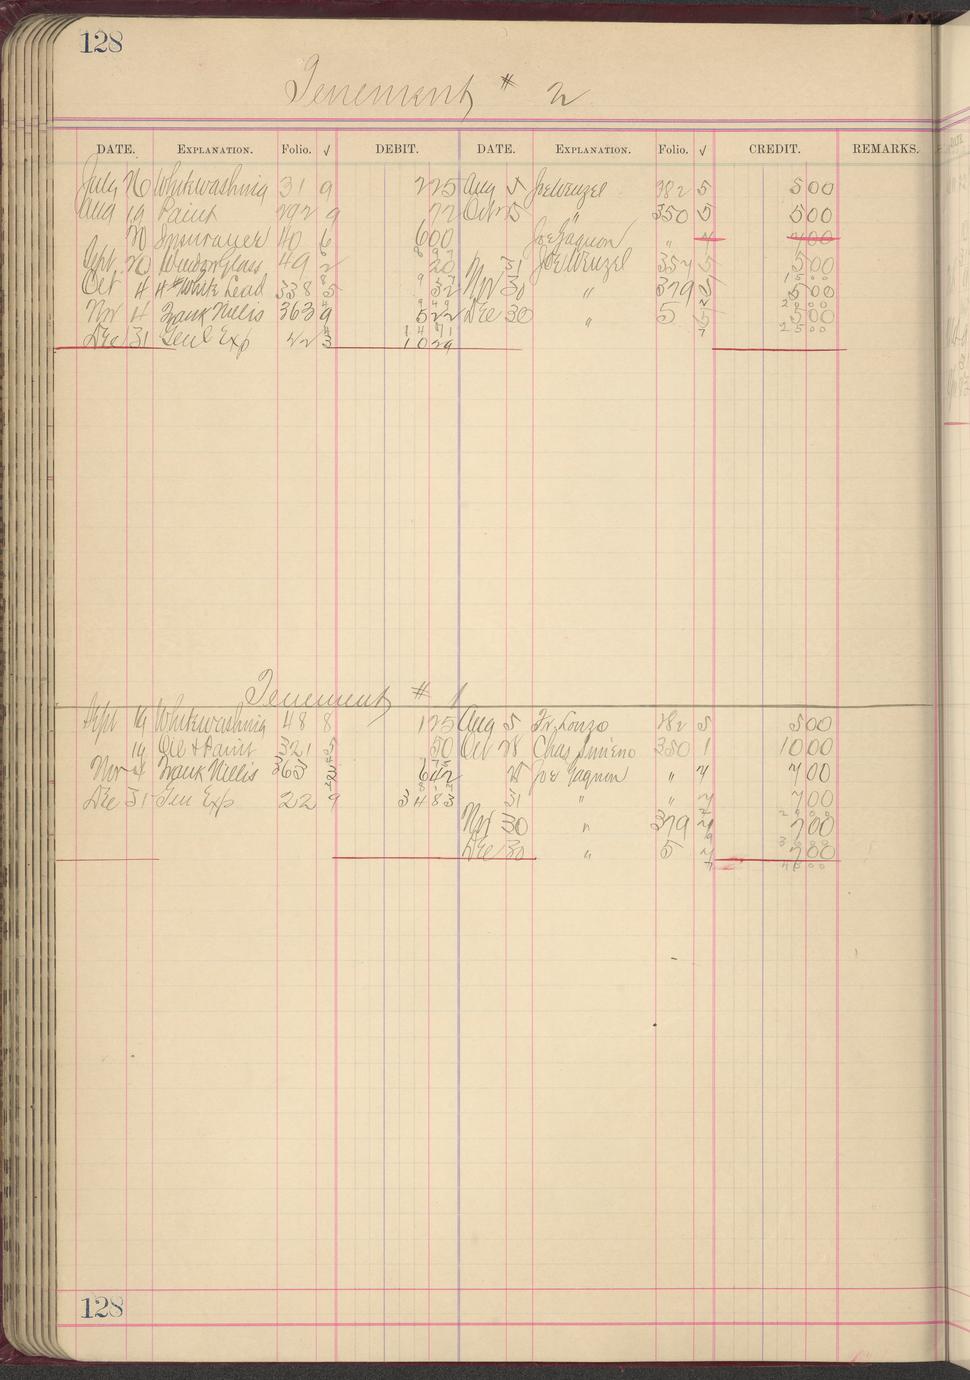 128
Tenement # 2
DATE. EXPLANATION. Folio. √ DEBIT. DATE. EXPLANATION. Folio. √ CREDIT. REMARKS.
July 26 Whitewashing 31 9 2 25 Aug 5 Joe Wenzel 282 5 5 00
Aug 19 Paint 292 9 72 Oct 25 " 350 5 5 00
20 Insurance 40 6 6 00 Joe Gagnon " 7 7 00
8 97
Sept. 20 Window Glass 49 2 20 31 Joe Wenzel 357 5 5 00
15 00
Oct 4 4# White Lead 338 5 32 Nov 30 " 379 5 5 00
9 49 20 00
Nov 4 Frank Willis 363 9 5 22 Dec 30 " 5 5 5 00
14 71 25 00
Dec 31 Genl Exp 42 3 10 29
Tenement # 1
Sept 19 Whitewashing 48 8 1 25 Aug 5 Fr. Lonzo 282 5 5 00
19 Oil & Paint 321 5 50 Oct 28 Chas 350 1 10 00
1 75
Nov 4 Frank Willis 363 6 42 25 Joe Gagnon " 7 7 00
Dec 31 Gen Exp 22 9 34 83 31 " " 7 7 00
Nov 30 " 379 7 7 00
Dec 30 " 5 7 7 00
128